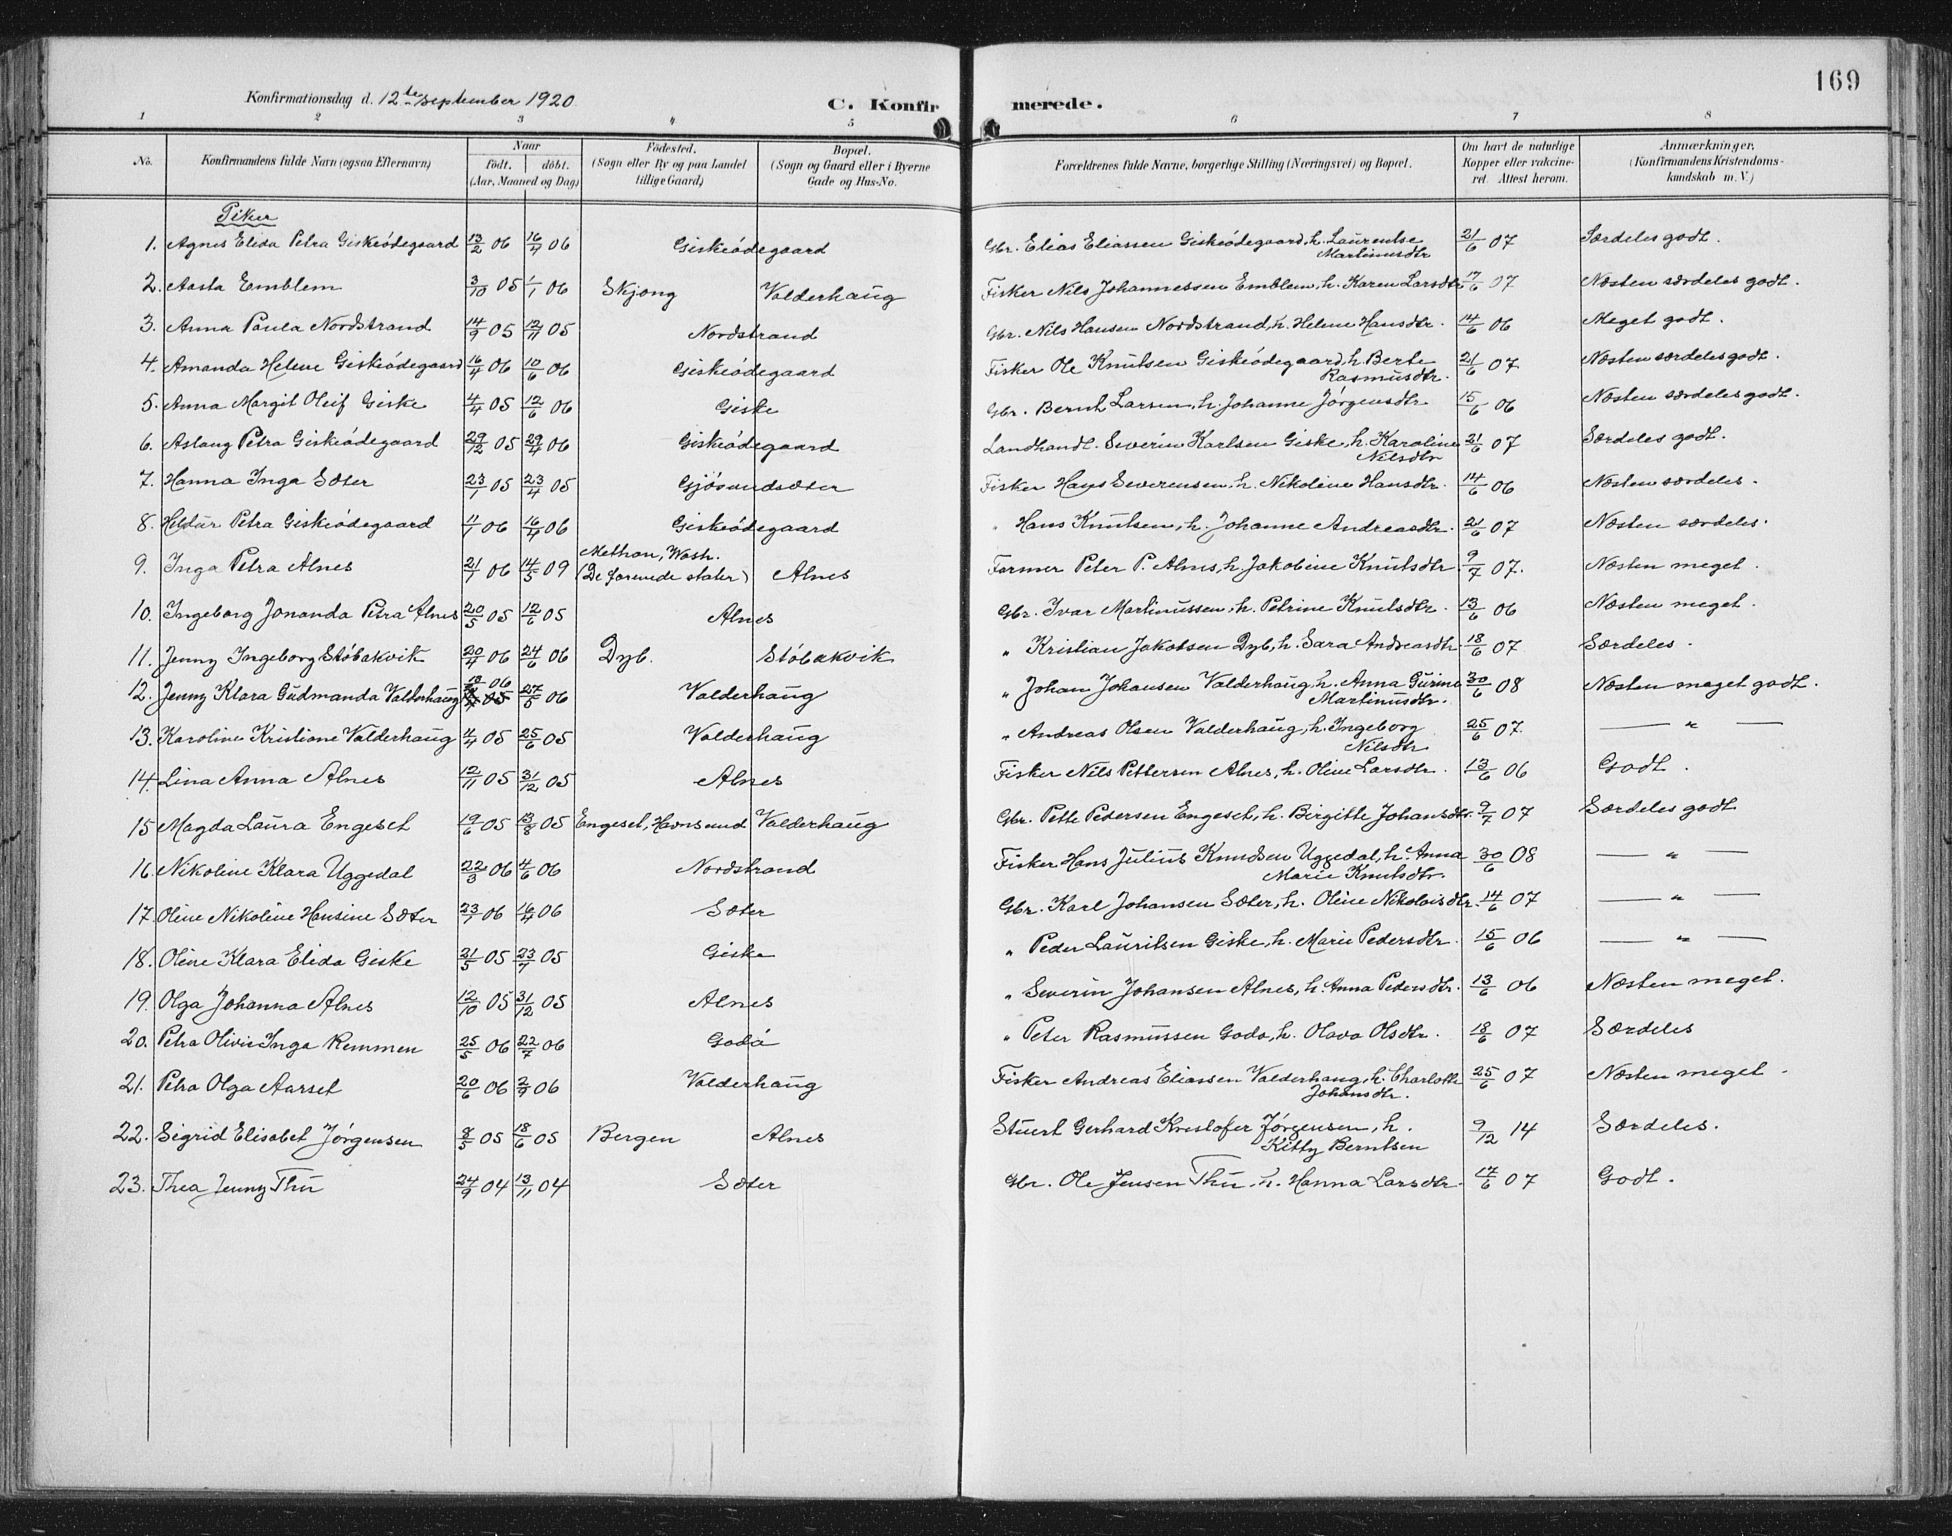 169
Konfirmationsdag d. 12te September 1920. C. Konfirmerede.
1 2 3 4 5 6 7 8
No. Konfirmandens fulde Navn (ogsaa Efternavn) Naar født. døbt. (Aar, Maaned og Dag) Fødested. (Sogn eller By og paa Landet tillige Gaard) Bopæl. (Sogn og Gaard eller i Byerne Gade og Hus-No. Forældrenes fulde Navne, borgerlige Stilling (Næringsvei) og Bopæl. Om havt de naturlige Kopper eller vakcineret. Attest herom. Anmærkninger. (Konfirmandens Kristendomskundskab m. V.)
Piker
1. Agnes Elida Petra Giskeødegaard 13/2 06 16/4 06 Giskeødegaard Gbr. Elias Eliassen Giskeødegaard, h. Laurentse Martinusdtr 21/6 07 Særdeles godt.
2. Aasta Emblem 3/10 05 1/1 06 Skjong Valderhaug Fisker Nils Johannessen Emblem, h. Karen Larsdtr 17/6 07 Næsten særdeles godt.
3. Anna Paula Nordstrand 14/9 05 12/11 05 Nordstrand Gbr. Nils Hansen Nordstrand, h. Helene Hansdtr. 14/6 06 Meget godt.
4. Amanda Helene Giskeødegaard 16/4 06 10/6 06 Giskeødegaard Fisker Ole Knutsen Giskeødegaard, h. Berte Rasmusdtr. 21/6 07 Næsten særdeles godt.
5. Anna Margit Oleif Giske 4/4 05 12/6 06 Giske Gbr. Bernt Larsen, h. Johanne Jørgensdtr 15/6 06 Næsten særdeles godt.
6. Aslaug Petra Giskeødegaard 29/12 05 29/4 06 Giskeødegaard Landhandl. Severin Karlsen Giske, h. Karoline Nilsdtr 21/6 07 Særdeles godt.
7. Hanna Inga Sæter 23/1 05 23/4 05 Gjøsundsæter Fisker Hans Severensen, h. Nikoline Hansdtr. 14/6 06 Næsten særdeles.
8. Hildur Petra Giskeødegaard 11/1 06 16/4 06 Giskeødegaard " Hans Knutsen, h. Johanne Andreasdtr. 21/6 07 Næsten særdeles.
9. Inga Petra Alnes 21/1 06 14/5 09 Methow, Wash. (De forenede stater) Alnes Farmer Peter P. Alnes, h. Jakobine Knutsdtr. 9/7 07. Næsten meget.
10. Ingeborg Jonanda Petra Alnes 20/5 05 12/6 05 Alnes Gbr. Ivar Martinussen, h. Petrine Knutsdtr. 13/6 06 Næsten meget.
11. Jenny Ingeborg Støbakvik 20/4 06 24/6 06 Dyb. Støbakvik " Kristian Jakobsen Dyb, h. Sara Andreasdtr 18/6 07 Særdeles.
12. Jenny Klara Gudmanda Valderhaug 06 05 27/5 06 Valderhaug " Johan Johansen Valderhaug, h. Anna Gurine Martinusdtr. 30/6 08 Næsten meget godt.
13. Karoline Kristiane Valderhaug 4/4 05 25/6 05 Valderhaug " Andreas Olsen Valderhaug, h. Ingeborg Nilsdtr 25/6 07. — " —
14. Lina Anna Alnes 12/11 05 31/12 05 Alnes Fisker Nils Pettersen Alnes, h. Oline Larsdtr. 13/6 06 Godt.
15 Magda Laura Engeset 19/6 05 13/8 05 Engeset, Havnsund Valderhaug Gbr. Pette Pedersen Engeset, h. Birgitte Johansdtr. 9/7 07 Særdeles godt
16. Nikoline Klara Uggedal 22/3 06 4/6 06 Nordstrand Fisker Hans Julius Knudsen Uggedal, h. Anna Marie Knutsdtr. 30/6 08 — " —
17 Oline Nikoline Hansine Sæter 23/1 06 16/4 06 Sæter Gbr. Karl Johansen Sæter, h. Oline Nikolaisdtr. 14/6 07 — " —
18. Oline Klara Elida Giske 21/5 05 23/7 05 Giske " Peder Lauritsen Giske, h. Marie Pedersdtr. 15/6 06 — " —
19. Olga Johanna Alnes 12/10 05 31/12 05 Alnes " Severin Johansen Alnes, h. Anna Pedersdtr. 13/6 06 Næsten meget.
20. Petra Olivie Inga Remmen 25/5 06 22/7 06 Godø " Peter Rasmussen Godø, h. Olava Olsdtr. 18/6 07 Særdeles
21. Petra Olga Aarset 20/6 06 2/9 06 Valderhaug Fisker Andreas Eliassen Valderhaug, h. Charlotte Johansdtr. 25/6 07 Næsten meget.
22. Sigrid Elisabet Jørgensen 8/5 05 18/6 05 Bergen Alnes Stuert Gerhard Kristofer Jørgensen, h. Kitty Berntsen 9/12 14 Særdeles.
23. Thea Jenny Thu 24/9 04 13/11 04 Sæter Gbr. Ole Jensen Thu. h. Hanna Larsdtr. 17/6 07 Godt.